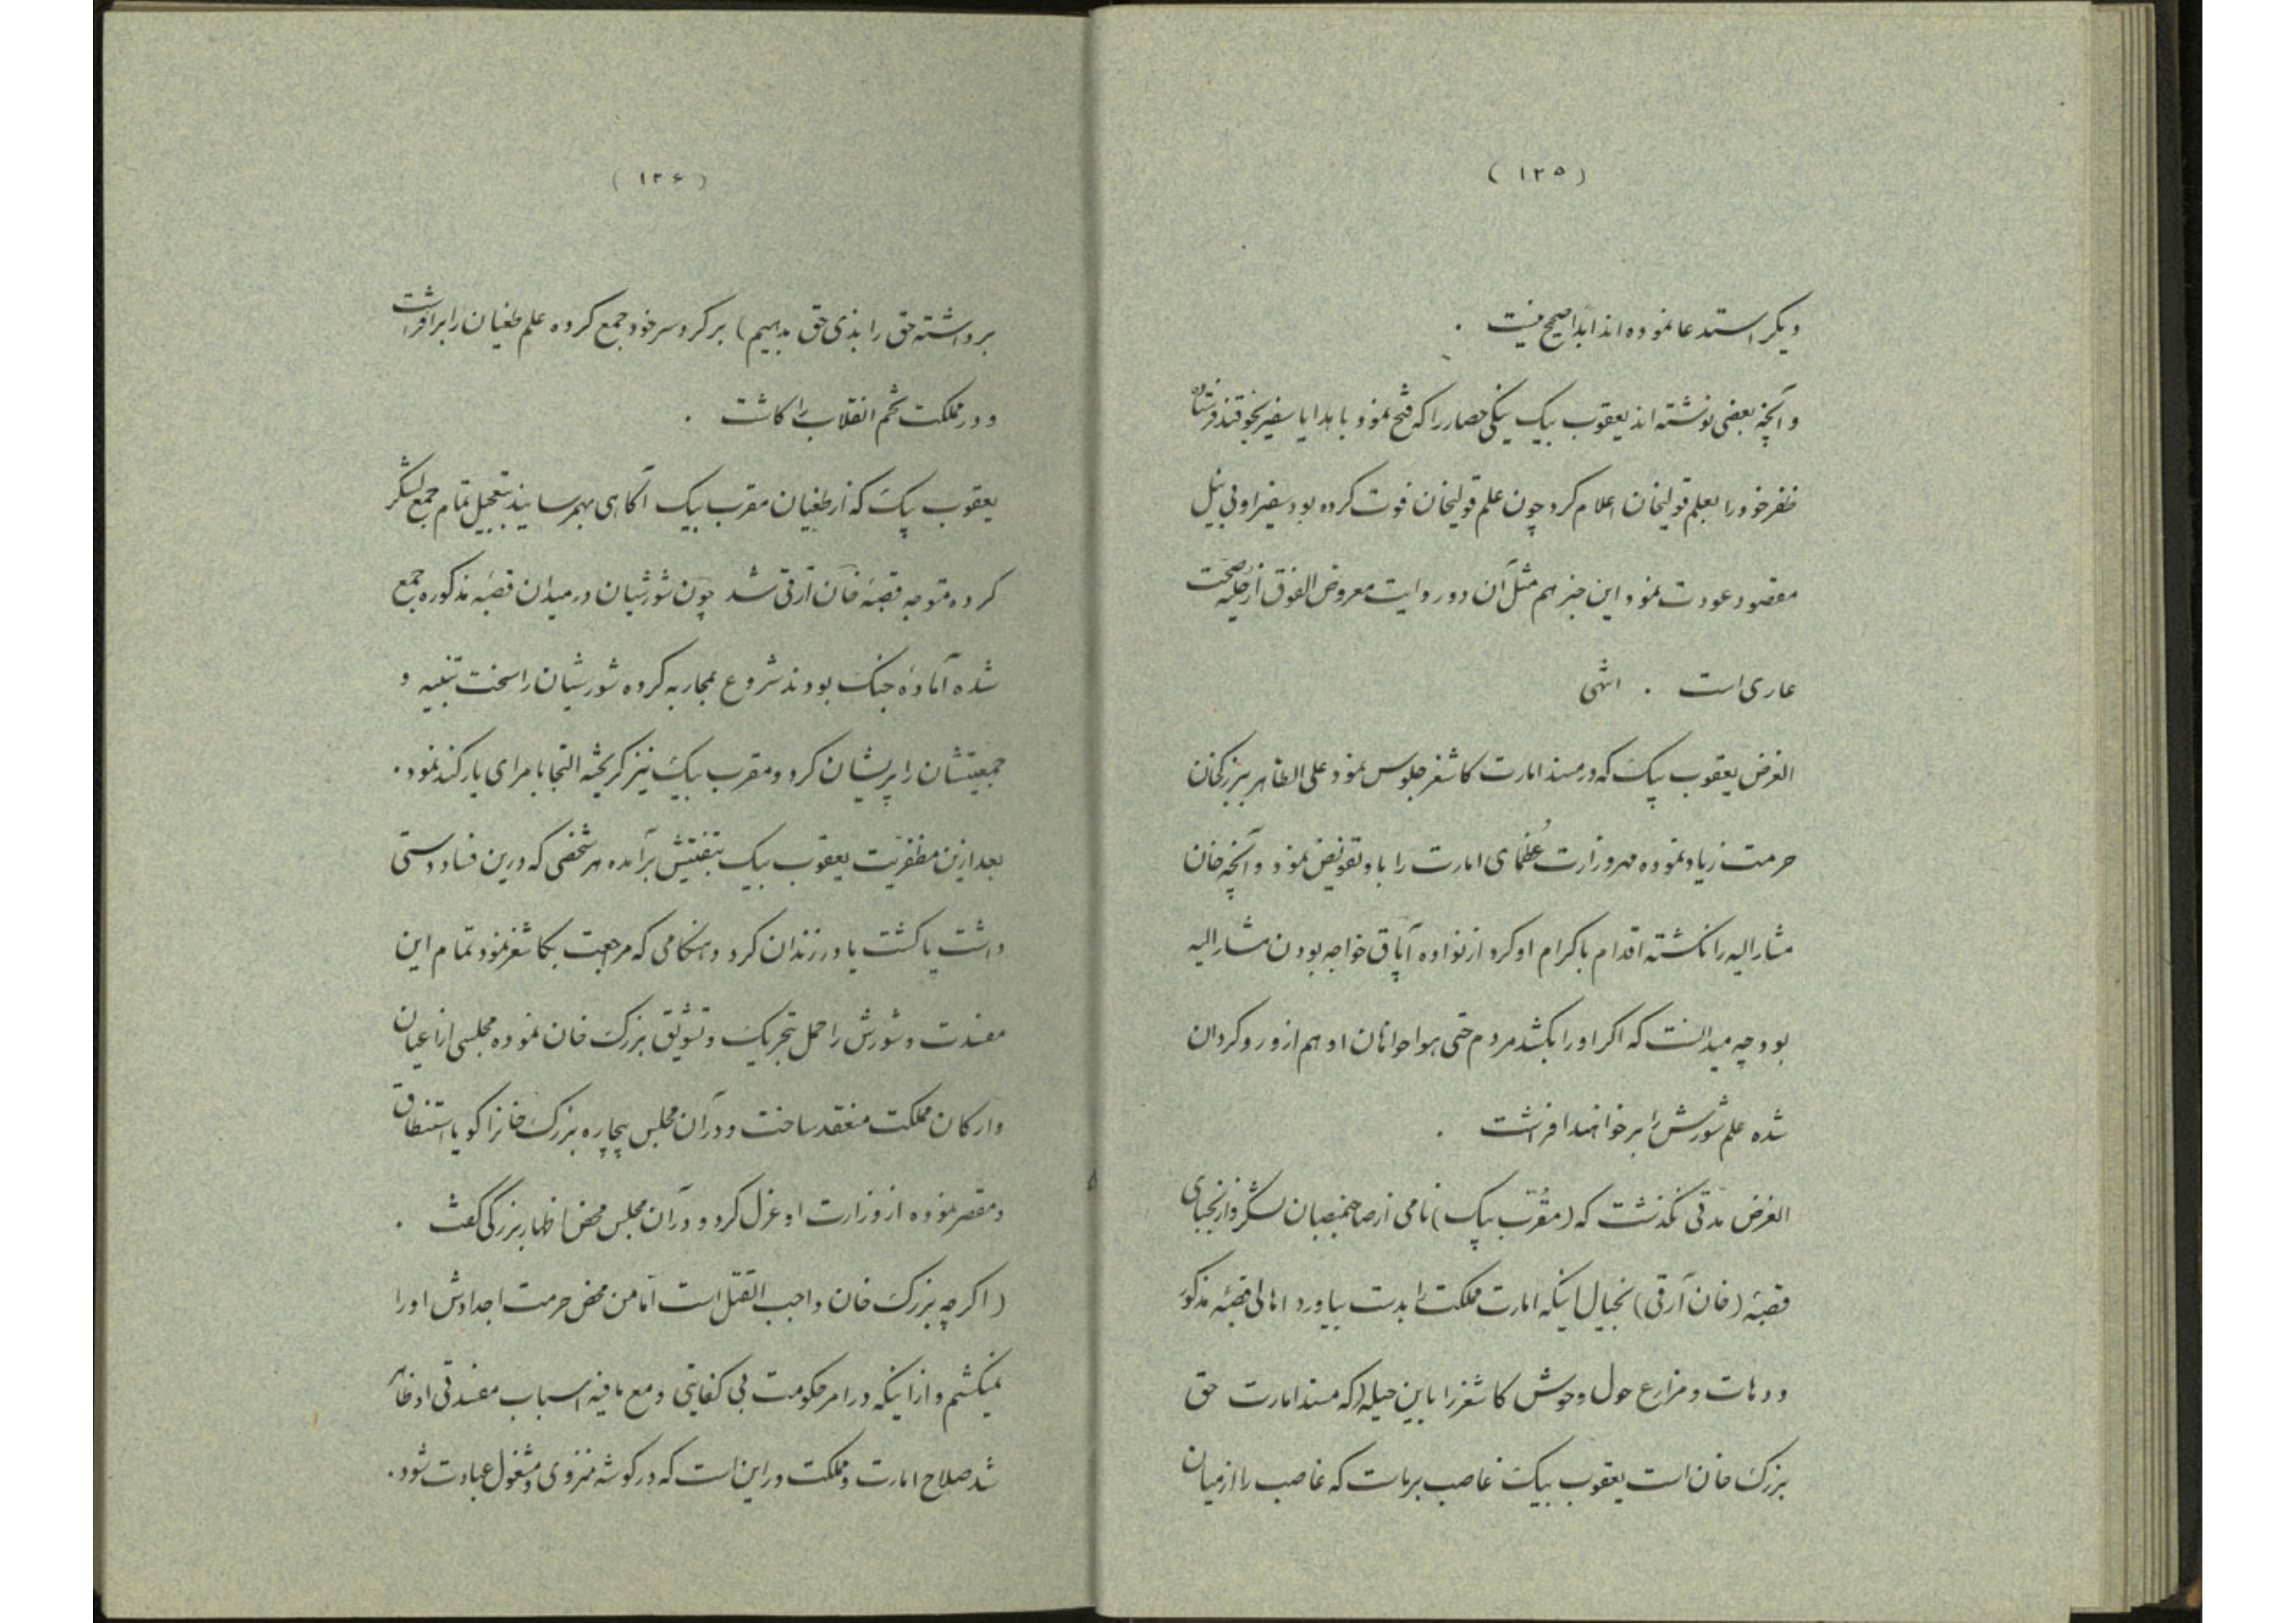 (۱۳۵)
دیگر استدعا نموده اند ابداً صحیح نیست .
و آنچه بعضی نوشته اند یعقوب بیک ینگی حصار را که فتح نمود با هدایا سفیر بخوقند فرستاده
ظفر خود را بعلم قولیخان اعلام کرد چون علم قولیخان فوت کرده بود سفیر او بی نیل
مقصود عودت نمود این خبر هم مثل آن دو روایت معروض الفوق از حلیه صحت
عاری است . انتهی
الغرض یعقوب بیک که در مسند امارت کاشغر جلوس نمود علی الظاهر ببزرکخان
حرمت زیاد نموده مهر وزارت عُظمای امارت را باو تفویض نمود و آنچه خان
مشار الیه را نکشته اقدام باکرام او کرد از نواده آپاق خواجه بودن مشار الیه
بود چه میدانست که اکر او را بکشد مردم حتی هواخواهان او هم ازو روکردان
شده علم شورش را بر خواهند افراشت .
الغرض مدتی نکذشت که (مقرّب بیک) نامی از صاحبمنصبان لشکر و از نجبای
قصبهٔ (خان آرقی) بخیال اینکه امارت مملکت را بدست بیاورد اهالی قصبهٔ مذکور
و دهات و مزارع حول و حوش کاشغر را باین حیله (که مسند امارت حق
بزرک خان است یعقوب بیک غاصب بر ماست که غاصب را از میان
(۱۳۶)
برداشته حق را بذی حق بدهیم) بر کرد سر خود جمع کرده علم طغیان را برافراشت
و در مملکت تخم انقلاب را کاشت .
یعقوب بیک که از طغیان مقرب بیک آکاهی بهمرسانید بتعجیل تمام جمع لشکر
کرده متوجه قصبهٔ خان آرقی شد چون شورشیان در میدان قصبهٔ مذکوره جمع
شده آمادهٔ جنک بودند شروع بمحاربه کرده شورشیان را سخت تنبیه و
جمعیتشان را پریشان کرد و مقرب بیک نیز کریخته التجا بامرای یارکند نمود .
بعد ازین مظفریت یعقوب بیک بتفتیش برآمده هر شخصی که درین فساد دستی
داشت یا کشت یا در زندان کرد و هنکامی که مراجعت بکاشغر نمود تمام این
مفسدت و شورش را حمل بتحریک و تشویق بزرک خان نموده مجلسی از اعیان
و ارکان مملکت منعقد ساخت و در آن مجلس بیچاره بزرک خانرا کویا استنطاق
و مقصر نموده از وزارت او عزل کرد و در آن مجلس محض اظهار بزرکی کفت .
(اکرچه بزرک خان واجب القتل است اما من محض حرمت اجدادش او را
نمیکشم و از اینکه در امر حکومت بی کفایتی و مع مافیه اسباب مفسدتی او ظاهر
شد صلاح امارت و مملکت در این است که در کوشه منزوی و مشغول عبادت شود .